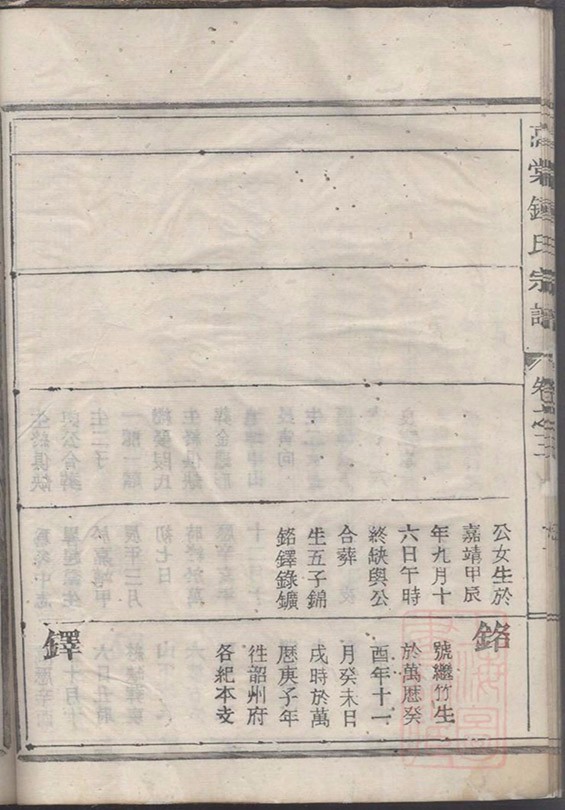 高棠鍾氏宗譜
卷之三
公女生於
嘉靖甲辰
年九月十
六日午時
終缺與公
合葬
生五子錦
銘鐸錄鑛
銘
號繼竹生
於萬曆癸
酉年十一
月癸未日
戌時於萬
曆庚子年
徃韶州府
各紀本支
鐸